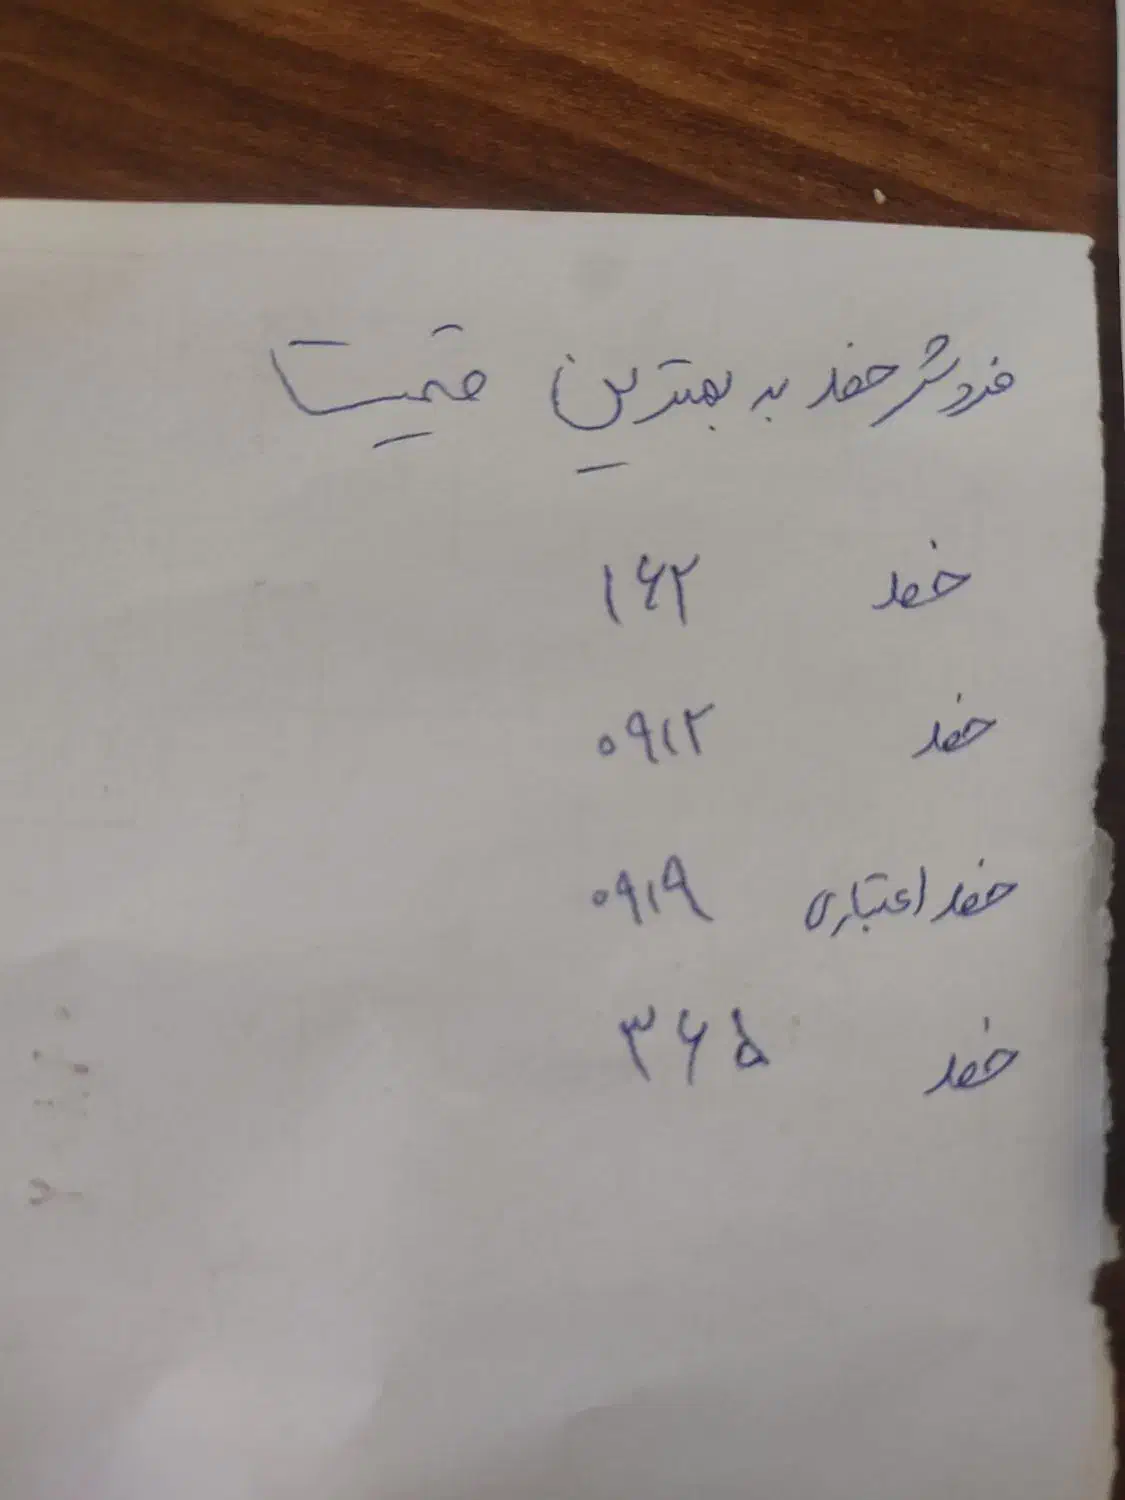 فروش خط به بهترین قیمت
خط ۱۶۲
خط ۰۹۱۲
خط اعتباری ۰۹۱۹
خط ۳۶۵